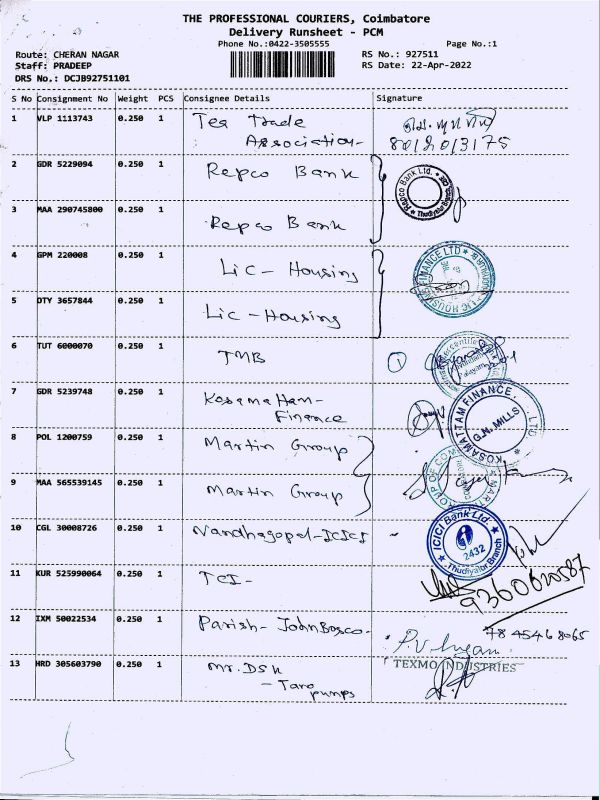 THE PROFESSIONAL COURIERS, Coimbatore
Delivery Runsheet - PCM
Phone No.:0422-3505555
Page No.:1
Route: CHERAN NAGAR
Staff: PRADEEP
DRS No.: DCJB92751101
RS No.: 927511
RS Date: 22-Apr-2022
S No Consignment No Weight PCS Consignee Details Signature
1 VLP 1113743 0.250 1 Tea Trade
Association-
80120/3175
2 GDR 5229094 0.250 1 Repco Bank
Repco Bank Ltd. * Thudiyalur Branch
3 MAA 290745800 0.250 1 Repco Bank
4 GPM 220008 0.250 1 Lic - Housing
5 DTY 3657844 0.250 1 Lic - Housing
LIC HOUSING FINANCE LTD
6 TUT 6000070 0.250 1 TMB
1
7 GDR 5239748 0.250 1 Kosamattam-
Finance
KOSAMATTAM FINANCE. LTD.
G.N. MILLS
8 POL 1200759 0.250 1 Martin Group
9 MAA 565539145 0.250 1 Martin Group
10 CGL 30008726 0.250 1 Nandhagopal-ICICI
ICICI Bank Ltd.
2432
Thudiyalur Branch
11 KUR 525990064 0.250 1 TCI-
9360620587
12 IXM 50022534 0.250 1 Parish- John Bosco-
7845468065
13 HRD 305603790 0.250 1 Mr. DSK
- Taro
pumps
TEXMO INDUSTRIES